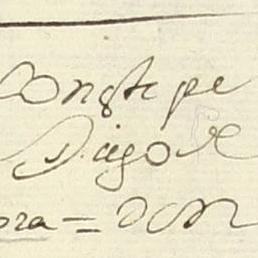 Conste pe
Diego de
ora = Don